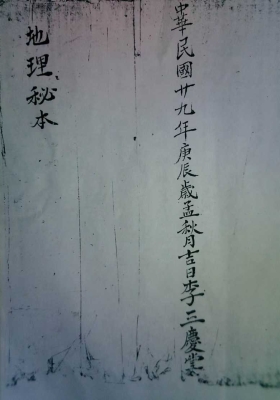 中華民國廿九年庚辰歲孟秋月吉日李三慶
地理秘本